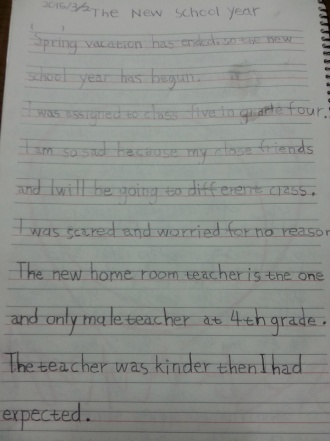 2015/3/2 The New School year
Spring vacation has ended, so the new
school year has begun.
I was assigned to class five in grade four.
I am so sad because my close friends
and I will be going to different class.
I was scared and worried for no reason
The new home room teacher is the one
and only male teacher at 4th grade.
The teacher was kinder then I had
expected.